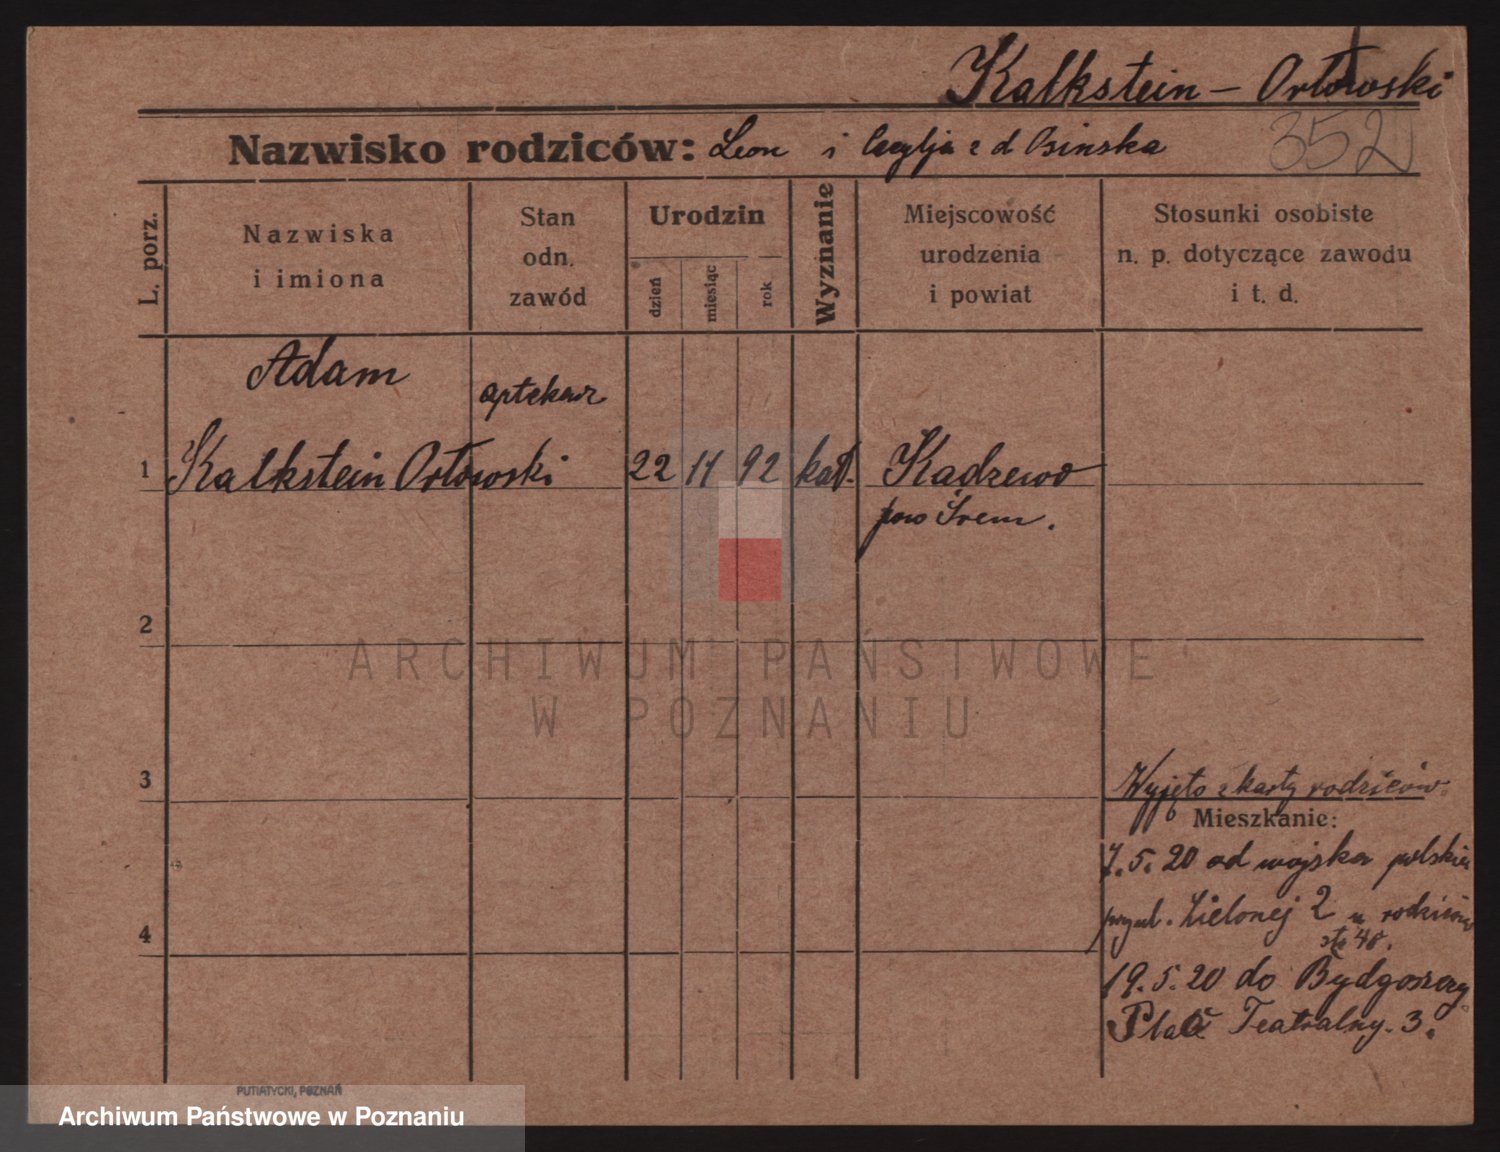 Kalkstein – Orłowski
Nazwisko rodziców: Leon i Cecylja z d Osinska
352
L. porz.
Nazwiska
i imiona
Stan
odn.
zawód
Urodzin
dzień
miesiąc
rok
Wyznanie
Miejscowość
urodzenia
i powiat
Stosunki osobiste
n. p. dotyczące zawodu
i t. d.
Adam
aptekarz
1 Kalkstein Orłowski 22 11 92 kat. Kadzewo
pow Śrem.
2
ARCHIWUM PAŃSTWOWE
W POZNANIU
3
Wyjęto z karty rodziców.
Mieszkanie:
7.5.20 od wojska polskie
Zielonej 2 u rodziców
4
str 48.
19.5.20 do Bydgoszczy
Plac Teatralny. 3.
PUTIATYCKI, POZNAŃ
Archiwum Państwowe w Poznaniu